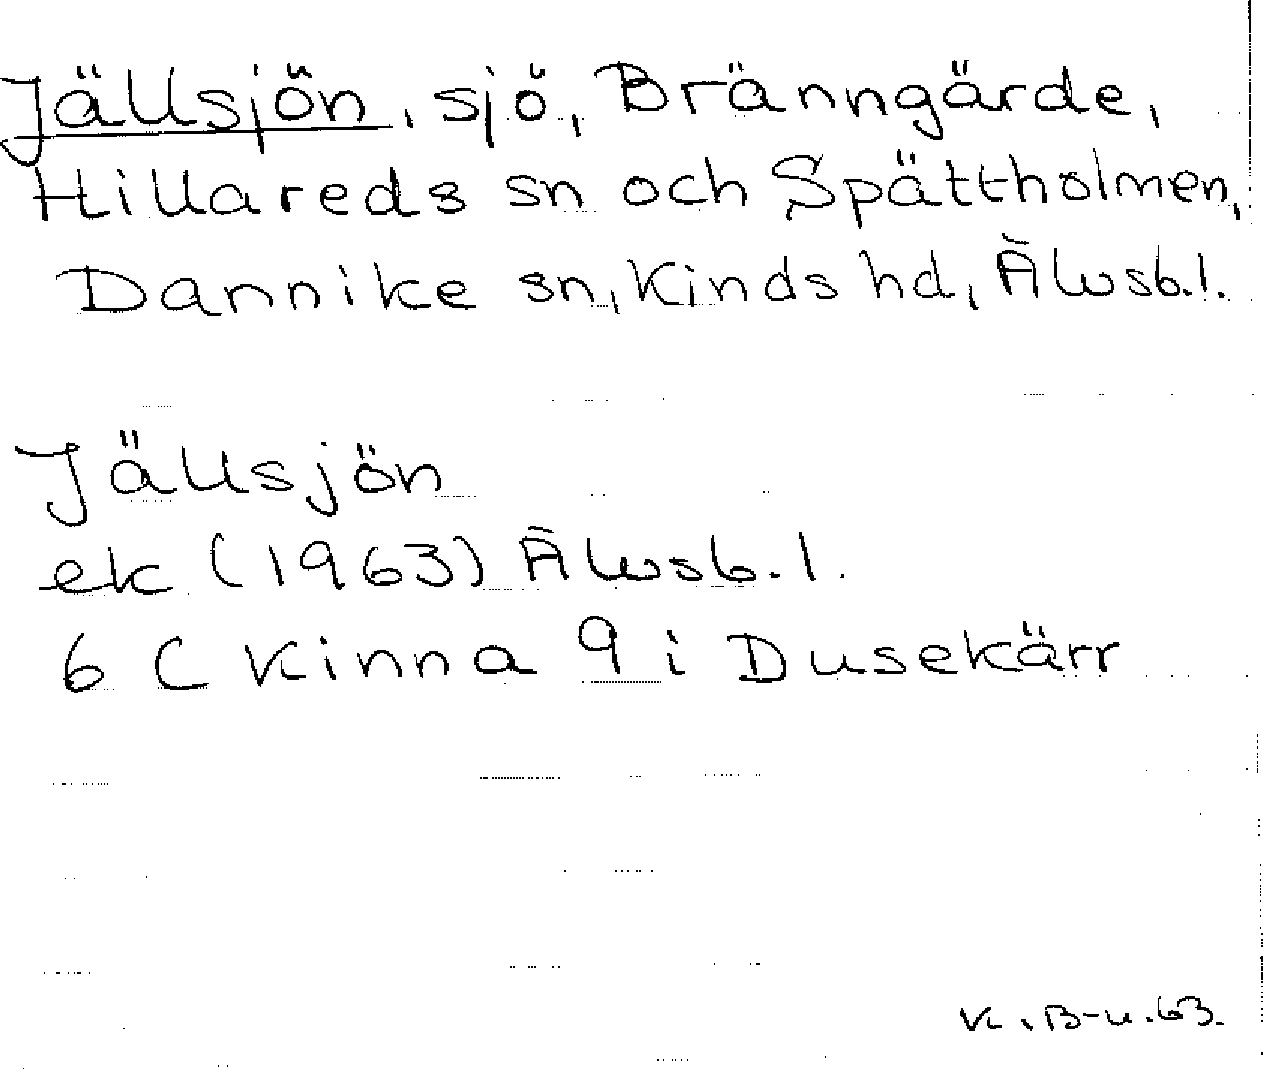 Jällsjön, sjö, Bränngärde,
Hillareds sn och Spättholmen,
Dannike sn, Kinds hd, Älvsb.l.
Jällsjön
ek (1963) Älvsb.l.
6 C Kinna 9 i Dusekärr
K.B-u.63.